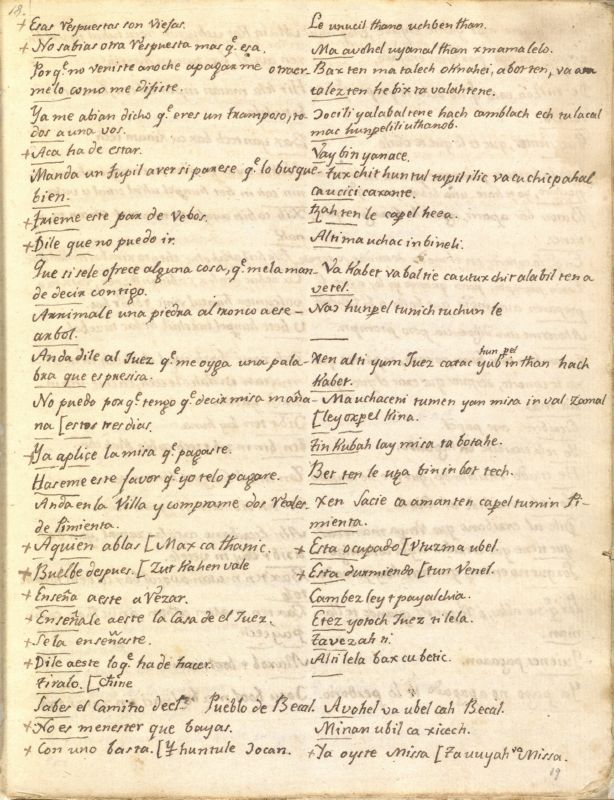 18.
+ Esas Respuestas son Viejas. Le unucil thano uchben than.
+ No sabias otra Respuesta mas q.e esa. Ma avohel uyanal than xmamalelo.
Porq.e no veniste anoche apagarme otraer Baxten ma talech oknahei, aborten, va
melo como me dijiste. talezten he bix ra valahtene.
Ya me abian dicho q.e eres un tramposo, to Jocili yalabaltene hach camblach ech tulacal
dos a una vos. mac hunpeliliuthanob.
+ Aca ha de estar. Vay bin yanace.
Manda un Tupil aver si parese q.e lo busque Tux chit huntul tupil ilic va cu chicpahal
bien. ca ucici caxante.
+ Trieme este par de Vebos. tzah ten le capel heea.
+ Dile que no puedo ir. Altima uchac in bineli.
Que si sele ofrece alguna cosa, q.e mela man- Va Kabet va bal tie ca utux chit alabil ten a
de decir contigo. vetel.
Arrimale una piedra al tronco aese- Nas hunpel tunich tuchun le
arbol.
Anda dile al Juez q.e me oyga una pala- Xen alti yum Juez catac yub hunppel in than hach
bra que es presisa. Kabet.
No puedo porq.e tengo q.e decir misa maña- Ma uchaceni tumen yan misa in val zamal
na [estos tres dias. [ley oxpel Kina.
+ Ya aplice la misa q.e pagaste. Tin Kubah lay misa ta botahe.
Haseme este favor q.e yo telo pagare. Bet ten le uza bin in bot tech.
Anda en la Villa y comprame dos Reales Xen Sacie ca amanten capel tumin Pi-
de Pimienta. mienta.
+ Aquien ablas [Max ca thanic. + Esta ocupado [Vtuzma ubel.
+ Buelbe despues. [Zut Kahen vale + Esta durmiendo [tun Venel.
+ Enseña aeste a Rezar. Cambez ley t payalchia.
+ Enseñale aeste la Casa de el Juez. Etez yotoch Juez ti lela.
+ Se la enseñaste. Ta vezah ti.
+ Dile aeste lo q.e ha de hacer. Al ti lela bax cu betic.
Tiralo. [Chine
Sabes el Camino decl Pueblo de Becal. Avohel va ubel cah Becal.
+ No es menester que bayas. Minan ubil ca xicech.
+ Con uno basta. [Y huntule Jocan. + Ya oyste Missa [Ta uuyah va Missa.
19